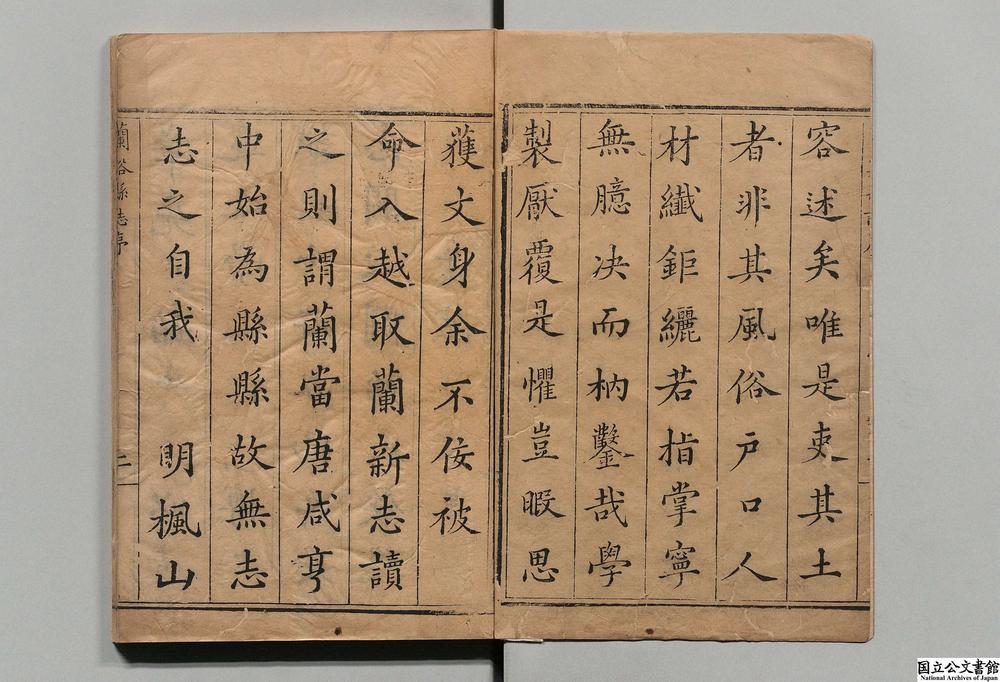 容述矣唯是吏其土
者非其風俗戶口人
材纖鉅纚若指掌寧
無臆决而枘鑿哉學
製厭覆是懼豈暇思
蘭谿縣志序
二
蒦文身余不佞被
命入越取蘭新志讀
之則謂蘭當唐咸亨
中始為縣縣故無志
志之自我 明楓山
国立公文書館
National Archives of Japan